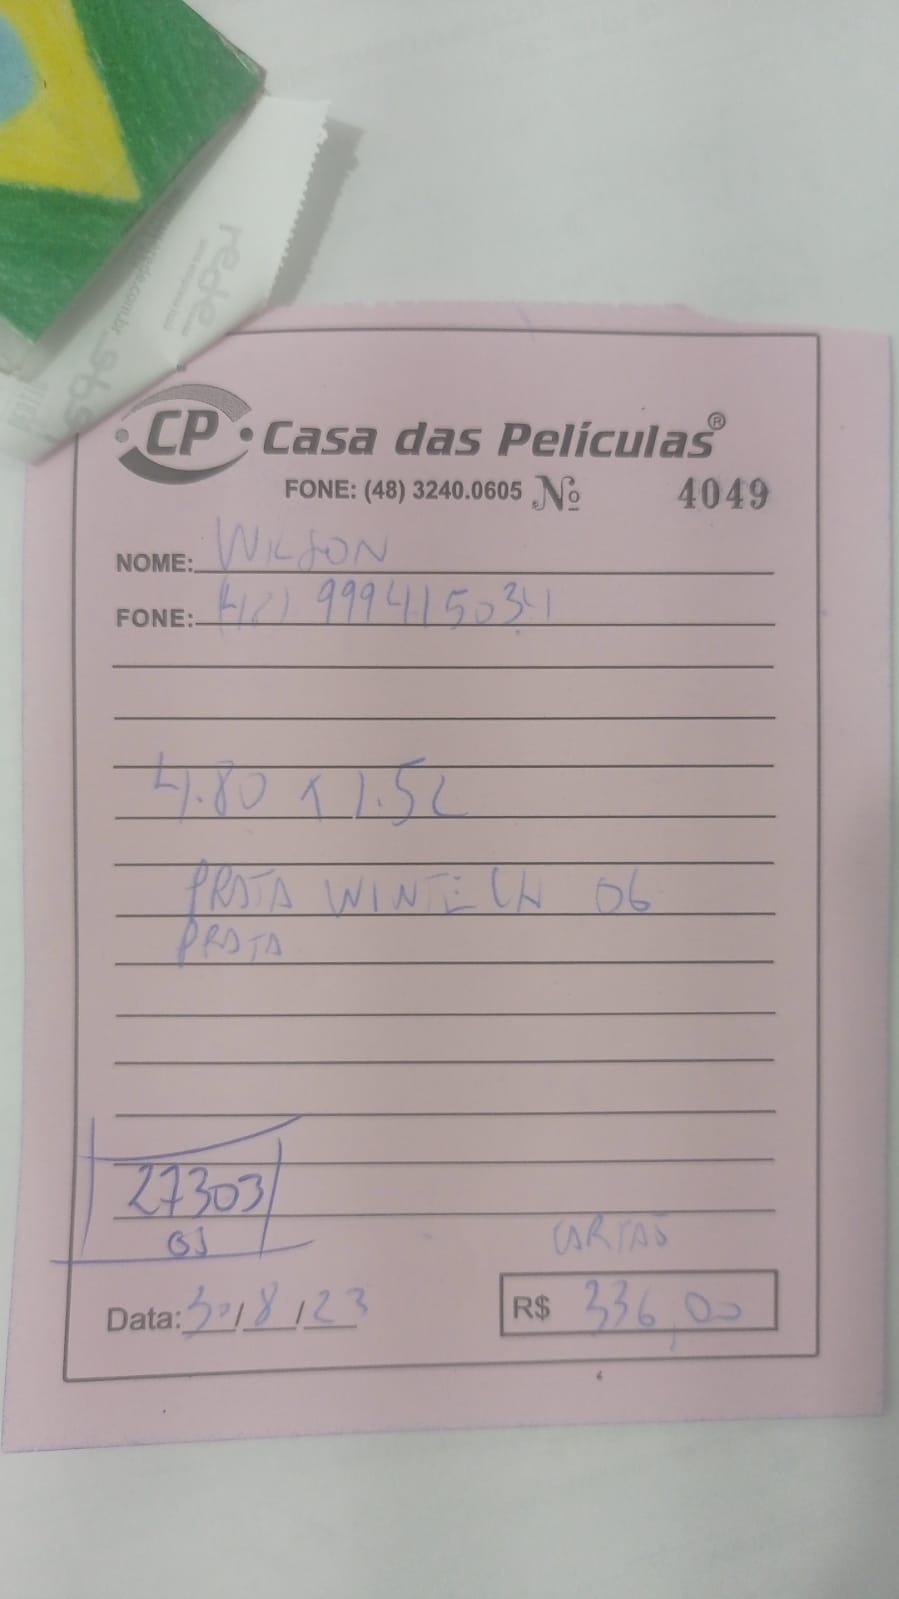 rede
CP Casa das Películas®
FONE: (48) 3240.0605 Nº 4049
NOME: WILSON
FONE: (48) 999415034
4.80 x 1.52
PRATA WINTECH 06
PRATA
27303
CARTAO
Data: 30/8/23 R$ 336,00